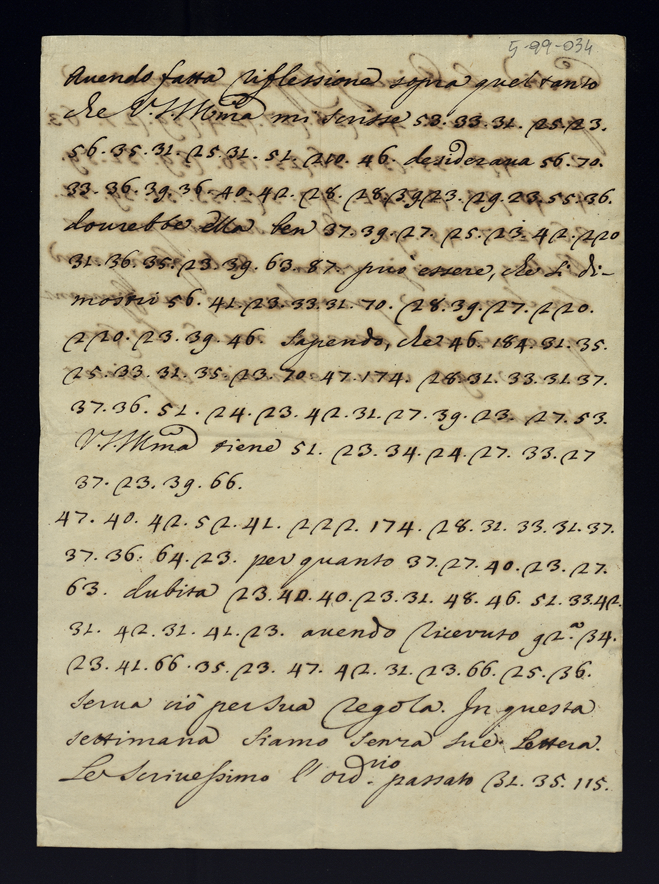 5-99-034
Avendo fatta riflessione sopra quel tanto
che V.S. Ill.ma mi scrisse 53. 33. 31. 25. 23.
56. 35. 31. 25. 31. 51. 210. 46. desiderava 56. 70.
33. 36. 39. 36. 40. 42. 28. 28. 39. 23. 29. 23. 55. 36.
dourebbe ella ben 37. 39. 27. 25. 23. 42. 220
31. 36. 35. 23. 39. 63. 87. può essere, che li di-
mostri 56. 41. 23. 33. 31. 70. 28. 39. 27. 220.
220. 23. 39. 46. sapendo, che 46. 184. 31. 35.
25. 33. 31. 35. 23. 70. 47. 174. 28. 31. 33. 31. 37.
37. 36. 51. 24. 23. 42. 31. 27. 39. 23. 27. 53.
V.S. Ill.ma tiene 51. 23. 34. 24. 27. 33. 27
37. 23. 39. 66.
47. 40. 42. 52. 41. 222. 174. 28. 31. 33. 31. 37.
37. 36. 64. 23. per quanto 37. 27. 40. 23. 27.
63. dubita 23. 40. 40. 23. 31. 48. 46. 51. 33. 42.
31. 42. 31. 41. 23. avendo ricevuto 34.
23. 41. 66. 35. 23. 47. 42. 31. 23. 66. 25. 36.
serva ciò per sua regola. In questa
settimana siamo senza sue lettere.
Le scrivessimo l'ord.rio passato 31. 35. 115.